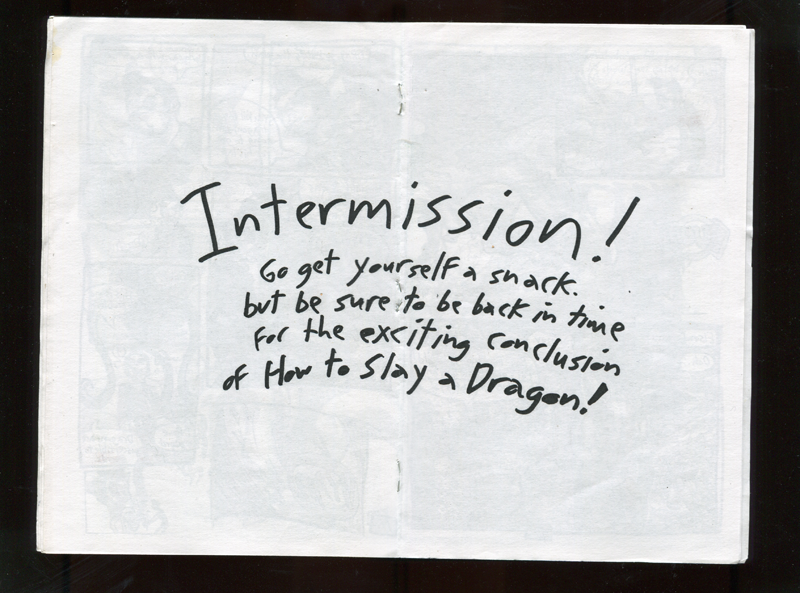 Intermission!
Go get yourself a snack.
but be sure to be back in time
for the exciting conclusion
of How to Slay a Dragon!